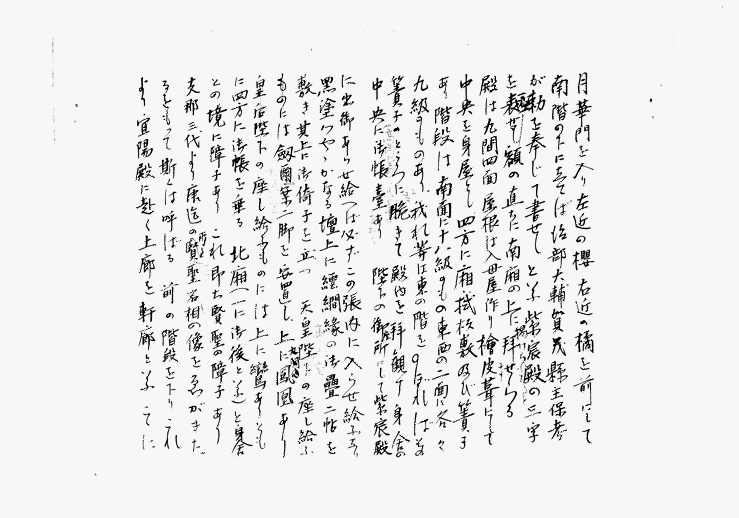 月華門を入り左近の櫻右近の橘を前にして
南階の下に立てば治部大輔賀茂縣主保考
が勅を奉じて書せしと云ふ紫宸殿の三字
を表せし額の直ちに南廂の上に拝せらる
殿は九間四面屋根は入母屋作り檜皮葺にして
中央を身屋とし四方に廂拭板敷及び簀子
あり階段は南面に十八級のもの東西の二面に各々
九級のものあり我れ等は東の階をのぼればその
簀子のところに跪きて殿内を拝観す身舎の
中央に御帳臺あり 陛下の御所にして紫宸殿
に出御あらせ給へば必ずこの張内に入らせ給ふなり
黒塗つやゝかなる壇上に繧繝縁の御疊二帖を
敷き其上に御倚子を立つ 天皇陛下の座し給ふ
ものには劔璽案二脚を安置し上に鳳凰あり
皇后陛下の座し給ふものには上に鸞ありとも
に四方に御帳を垂る 北廂(一に御後と云ふ)と身舎
との境に障子ありこれ即ち賢聖の障子あり
支那三代より唐迄の賢聖名相の像をゑがきた
るをもって斯くは呼ばる 前の階段を下りこれ
より宜陽殿に赴く上廊を軒廊と云ふ こゝに